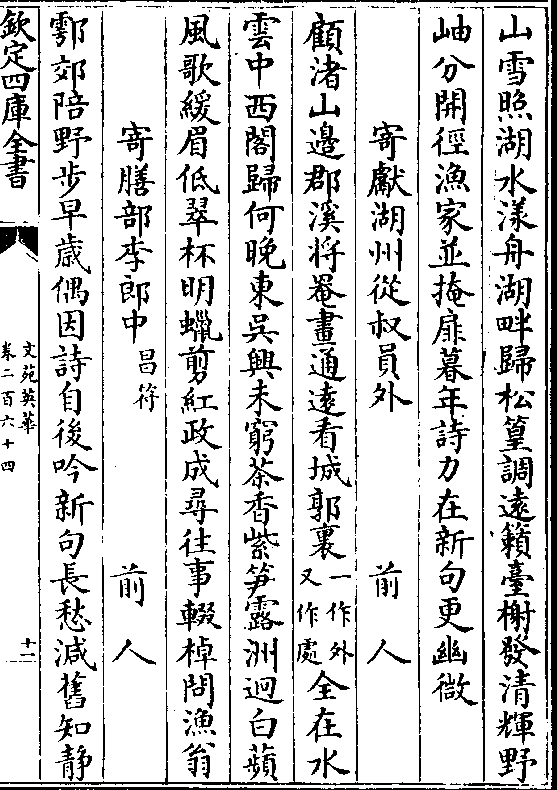 山雪照湖水漾舟湖畔歸松篁調遠籟臺榭發清輝野
岫分開徑漁家並掩扉暮年詩力在新句更幽微
寄獻湖州從叔員外 前人
顧渚山邊郡溪將罨畫通遠看城郭裏一作外又作處全在水
雲中西閣歸何晚東吳興未窮茶香紫笋露洲迥白蘋
風歌緩眉低翠杯明蠟剪紅政成尋往事輟棹問漁翁
寄膳部李郎中昌符 前人
鄠郊陪野步早歳偶因詩自後吟新句長愁減舊知静
欽定四庫全書
文苑英華
卷二百六十四
十二